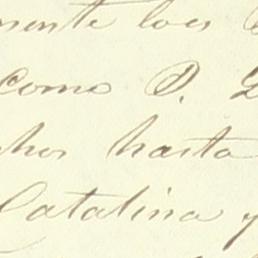 mente loes
como D.
hos hasta
Catalina y